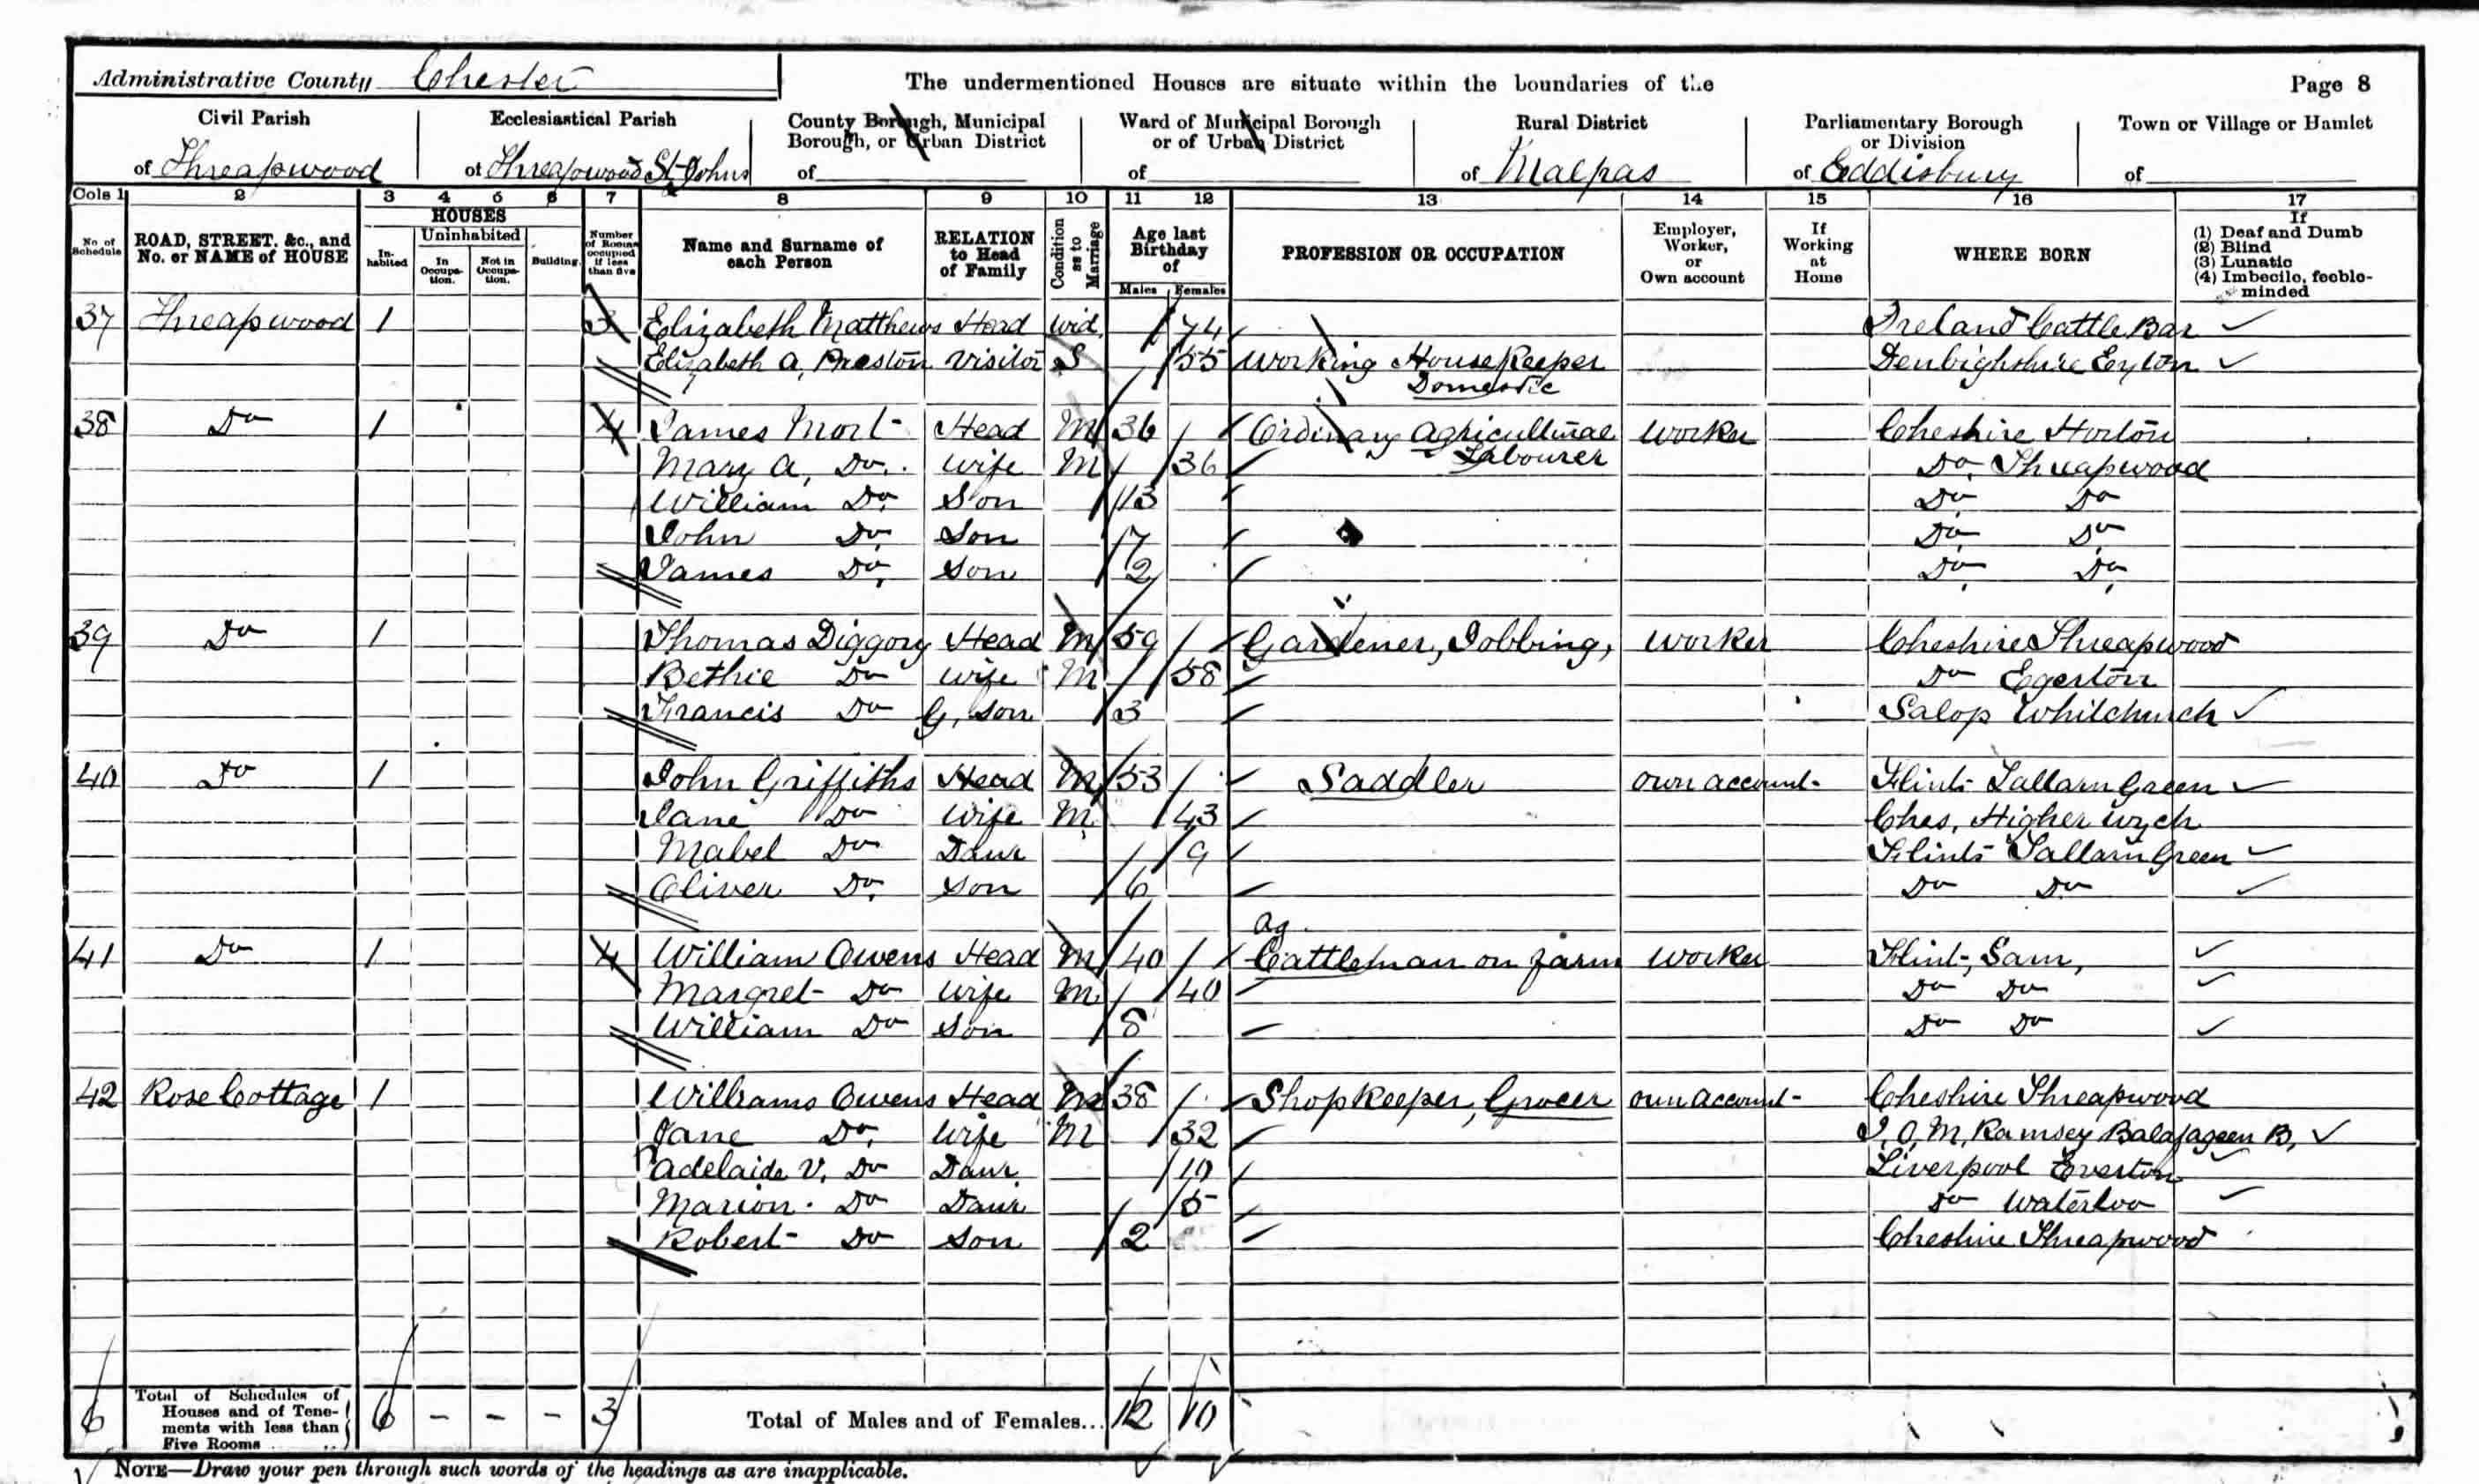 Administrative County Chester The undermentioned Houses are situate within the boundaries of the Page 8
Civil Parish Ecclesiastical Parish County Borough, Municipal Borough, or Urban District Ward of Municipal Borough or of Urban District Rural District Parliamentary Borough or Division Town or Village or Hamlet
of Threapwood of Threapwood St Johns of of of Malpas of Eddisbury of
Cols 1 2 3 4 5 6 7 8 9 10 11 12 13 14 15 16 17
No of Schedule ROAD, STREET, &c., and No. or NAME of HOUSE HOUSES Inhabited Uninhabited In Occupation. Not in Occupation. Building. Number of Rooms occupied if less than five Name and Surname of each Person RELATION to Head of Family Condition as to Marriage Age last Birthday of Males Females PROFESSION OR OCCUPATION Employer, Worker, or Own account If Working at Home WHERE BORN If (1) Deaf and Dumb (2) Blind (3) Lunatic (4) Imbecile, feeble-minded
37 Threapwood 1 3 Elizabeth Matthews Head Wid 74 Ireland Cattle Bar
Elizabeth A, Preston Visitor S 55 Working Housekeeper Denbighshire Eyton
Domestic
38 Do 1 4 James Mort Head M 36 Ordinary Agricultural worker Cheshire Horton
Labourer
Mary A, Do. wife M 36 Do Threapwood
William Do Son 13 Do Do
John Do Son 7 Do Do
James Do Son 2 Do Do
39 Do 1 Thomas Diggory Head M 59 Gardener, Jobbing, worker Cheshire Threapwood
Bethie Do wife M 58 Do Egerton
Francis Do G, son 3 Salop Whitchurch
40 Do 1 John Griffiths Head M 53 Saddler own account Flint Tallarn Green
Jane Do wife M 43 Ches, Higher Wych
Mabel Do Daur 9 Flint Tallarn Green
Oliver Do Son 6 Do Do
Ag
41 Do 1 4 William Owens Head M 40 Cattleman on farm worker Flint, Sarn,
Margret Do wife M 40 Do Do
William Do Son 8 Do Do
42 Rose Cottage 1 Williams Owens Head M 38 Shopkeeper, Grocer own account Cheshire Threapwood
Jane Do wife M 32 I, O, M, Ramsey
Adelaide V. Do Daur 10 Liverpool Everton
Marion. Do Daur 5 Do Waterloo
Robert Do Son 2 Cheshire Threapwood
6 Total of Schedules of Houses and of Tenements with less than Five Rooms 6 – – – 3 Total of Males and of Females... 12 10
NOTE—Draw your pen through such words of the headings as are inapplicable.